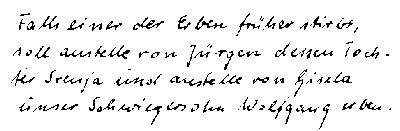 Falls einer der Erben früher stirbt,
soll anstelle von Jürgen dessen Toch-
ter Svenja und anstelle von Gisela
unser Schwiegersohn Wolfgang erben.